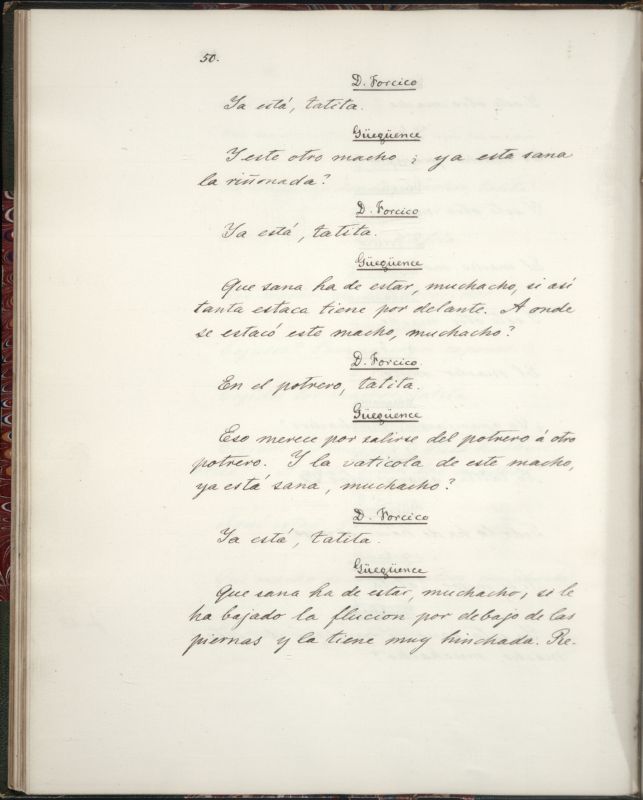 50.
D. Forcico
Ya está, tatita.
Güegüence
Y este otro macho ¿ ya esta sana
la riñonada?
D. Forcico
Ya está, tatita.
Güegüence
Que sana ha de estar, muchacho, si asi
tanta estaca tiene por delante. A onde
se estacó este macho, muchacho?
D. Forcico
En el potrero, tatita.
Güegüence
Eso merece por salirse del potrero á otro
potrero. Y la vaticola de este macho,
ya está sana, muchacho?
D. Forcico
Ya está, tatita.
Güegüence
Que sana ha de estar, muchacho, si le
ha bajado la flucion por debajo de las
piernas y la tiene muy hinchada. Re-